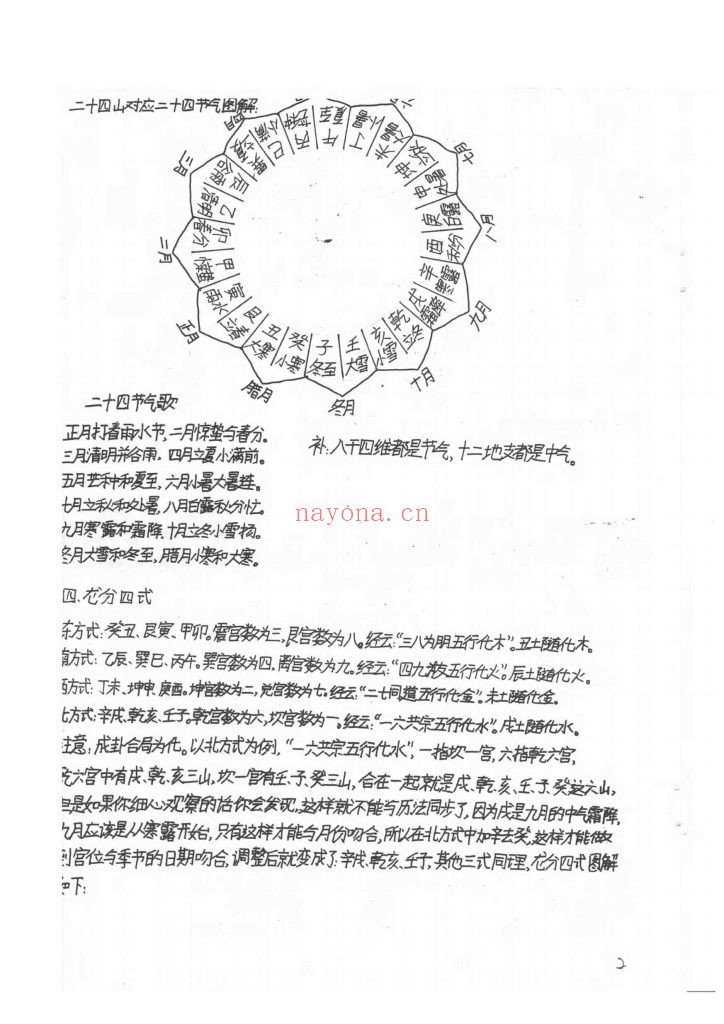 二十四山对应二十四节气图解:
四月
三月
二月
正月
腊月
冬月
十月
九月
八月
七月
六
巳 小满
丙 芒种
午 夏至
丁 小暑
未 大暑
坤 立秋
申 处暑
庚 白露
酉 秋分
辛 寒露
戌 霜降
乾 立冬
亥 小雪
壬 大雪
子 冬至
癸 小寒
丑 大寒
艮 立春
寅 雨水
甲 惊蛰
卯 春分
乙 清明
辰 谷雨
巽 立夏
二十四节气歌
正月打春雨水节,二月惊蛰与春分。
三月清明并谷雨,四月立夏小满前。
五月芒种和夏至,六月小暑大暑连。
七月立秋和处暑,八月白露秋分忙。
九月寒露和霜降,十月立冬小雪扬。
冬月大雪和冬至,腊月小寒和大寒。
补:八干四维都是节气,十二地支都是中气。
nayona.cn
四、龙分四式
东方式:癸丑、艮寅、甲卯。震宫数为三,艮宫数为八。经云:“三八为朋五行化木”。丑土随化木。
南方式:乙辰、巽巳、丙午。巽宫数为四、离宫数为九。经云:“四九为友五行化火”。辰土随化火。
西方式:丁未、坤申、庚酉。坤宫数为二,兑宫数为七。经云:“二七同道五行化金”。未土随化金。
北方式:辛戌、乾亥、壬子。乾宫数为六,坎宫数为一。经云:“一六共宗五行化水”。戌土随化水。
注意:成卦合局为化。以北方式为例,“一六共宗五行化水”,一指坎一宫,六指乾六宫,
乾六宫中有戌、乾、亥三山,坎一宫有壬、子、癸三山,合在一起就是戌、乾、亥、壬、子、癸这六山,
但是如果你细心观察的话你会发现,这样就不能与历法同步了,因为戌是九月的中气霜降,
九月应该是从寒露开始,只有这样才能与月份吻合,所以在北方式中加辛去癸,这样才能做
到宫位与季节的日期吻合,调整后就变成了辛戌、乾亥、壬子,其他三式同理,龙分四式图解
如下:
2